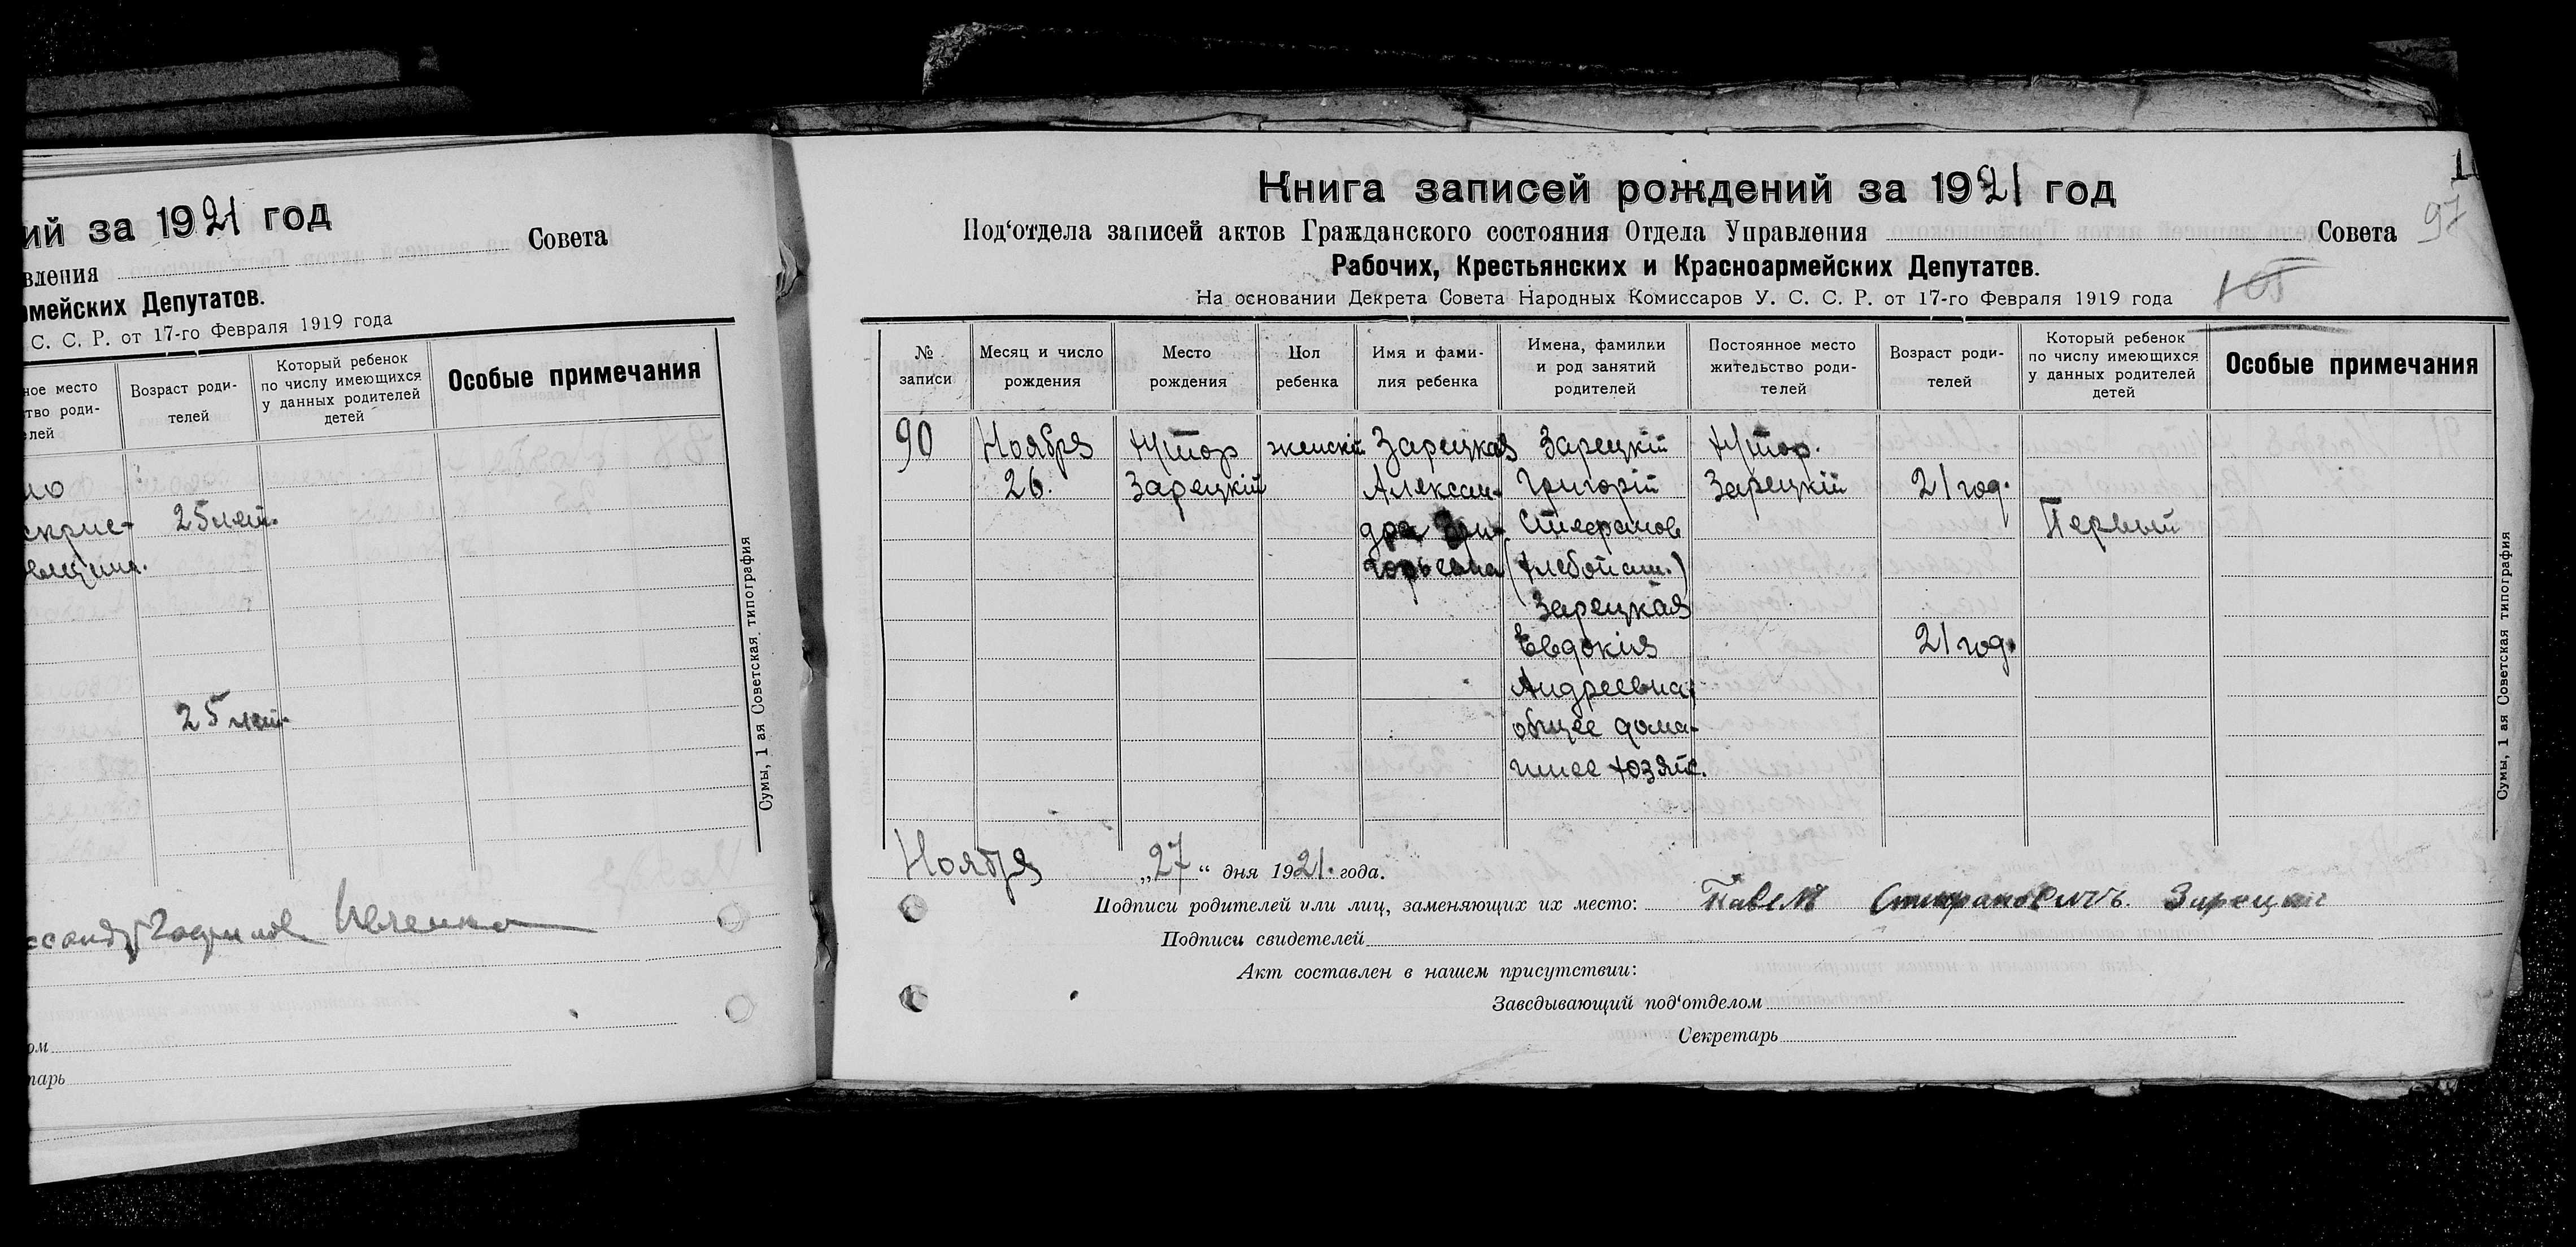 ий за 1921 год
вления Совета
рмейских Депутатов.
С. С. Р. от 17-го Февраля 1919 года
ное место
тво роди-
елей
Возраст роди-
телей
Который ребенок
по числу имеющихся
у данных родителей
детей
Особые примечания
25 лет.
25 лет.
Сумы, 1 ая Советская типография
Ивченко
ом
тарь
Книга записей рождений за 1921 год
97
Под‘отдела записей актов Гражданского состояния Отдела Управления Совета
Рабочих, Крестьянских и Красноармейских Депутатов.
На основании Декрета Совета Народных Комиссаров У. С. С. Р. от 17-го Февраля 1919 года
№
записи
Месяц и число
рождения
Место
рождения
Пол
ребенка
Имя и фами-
лия ребенка
Имена, фамилии
и род занятий
родителей
Постоянное место
жительство роди-
телей
Возраст роди-
телей
Который ребенок
по числу имеющихся
у данных родителей
детей
Особые примечания
90
Ноября
26.
Хутор
Зарецкій
женскій
Зарецкая
Алексан-
дра Гри-
горьевна
Зарецкій
Григорій
Стефанов
(хлебопаш.)
Зарецкая
Евдокія
Андреевна
общее дома-
шнее хозяйс.
Хутор.
Зарецкій
21 год.
21 год.
Первый
Сумы, 1 ая Советская типография
Ноября „27“ дня 1921. года.
Подписи родителей или лиц, заменяющих их место: Павел Стефановичъ. Зарецкий
Подписи свидетелей
Акт составлен в нашем присутствии:
Заведывающий под‘отделом
Секретарь